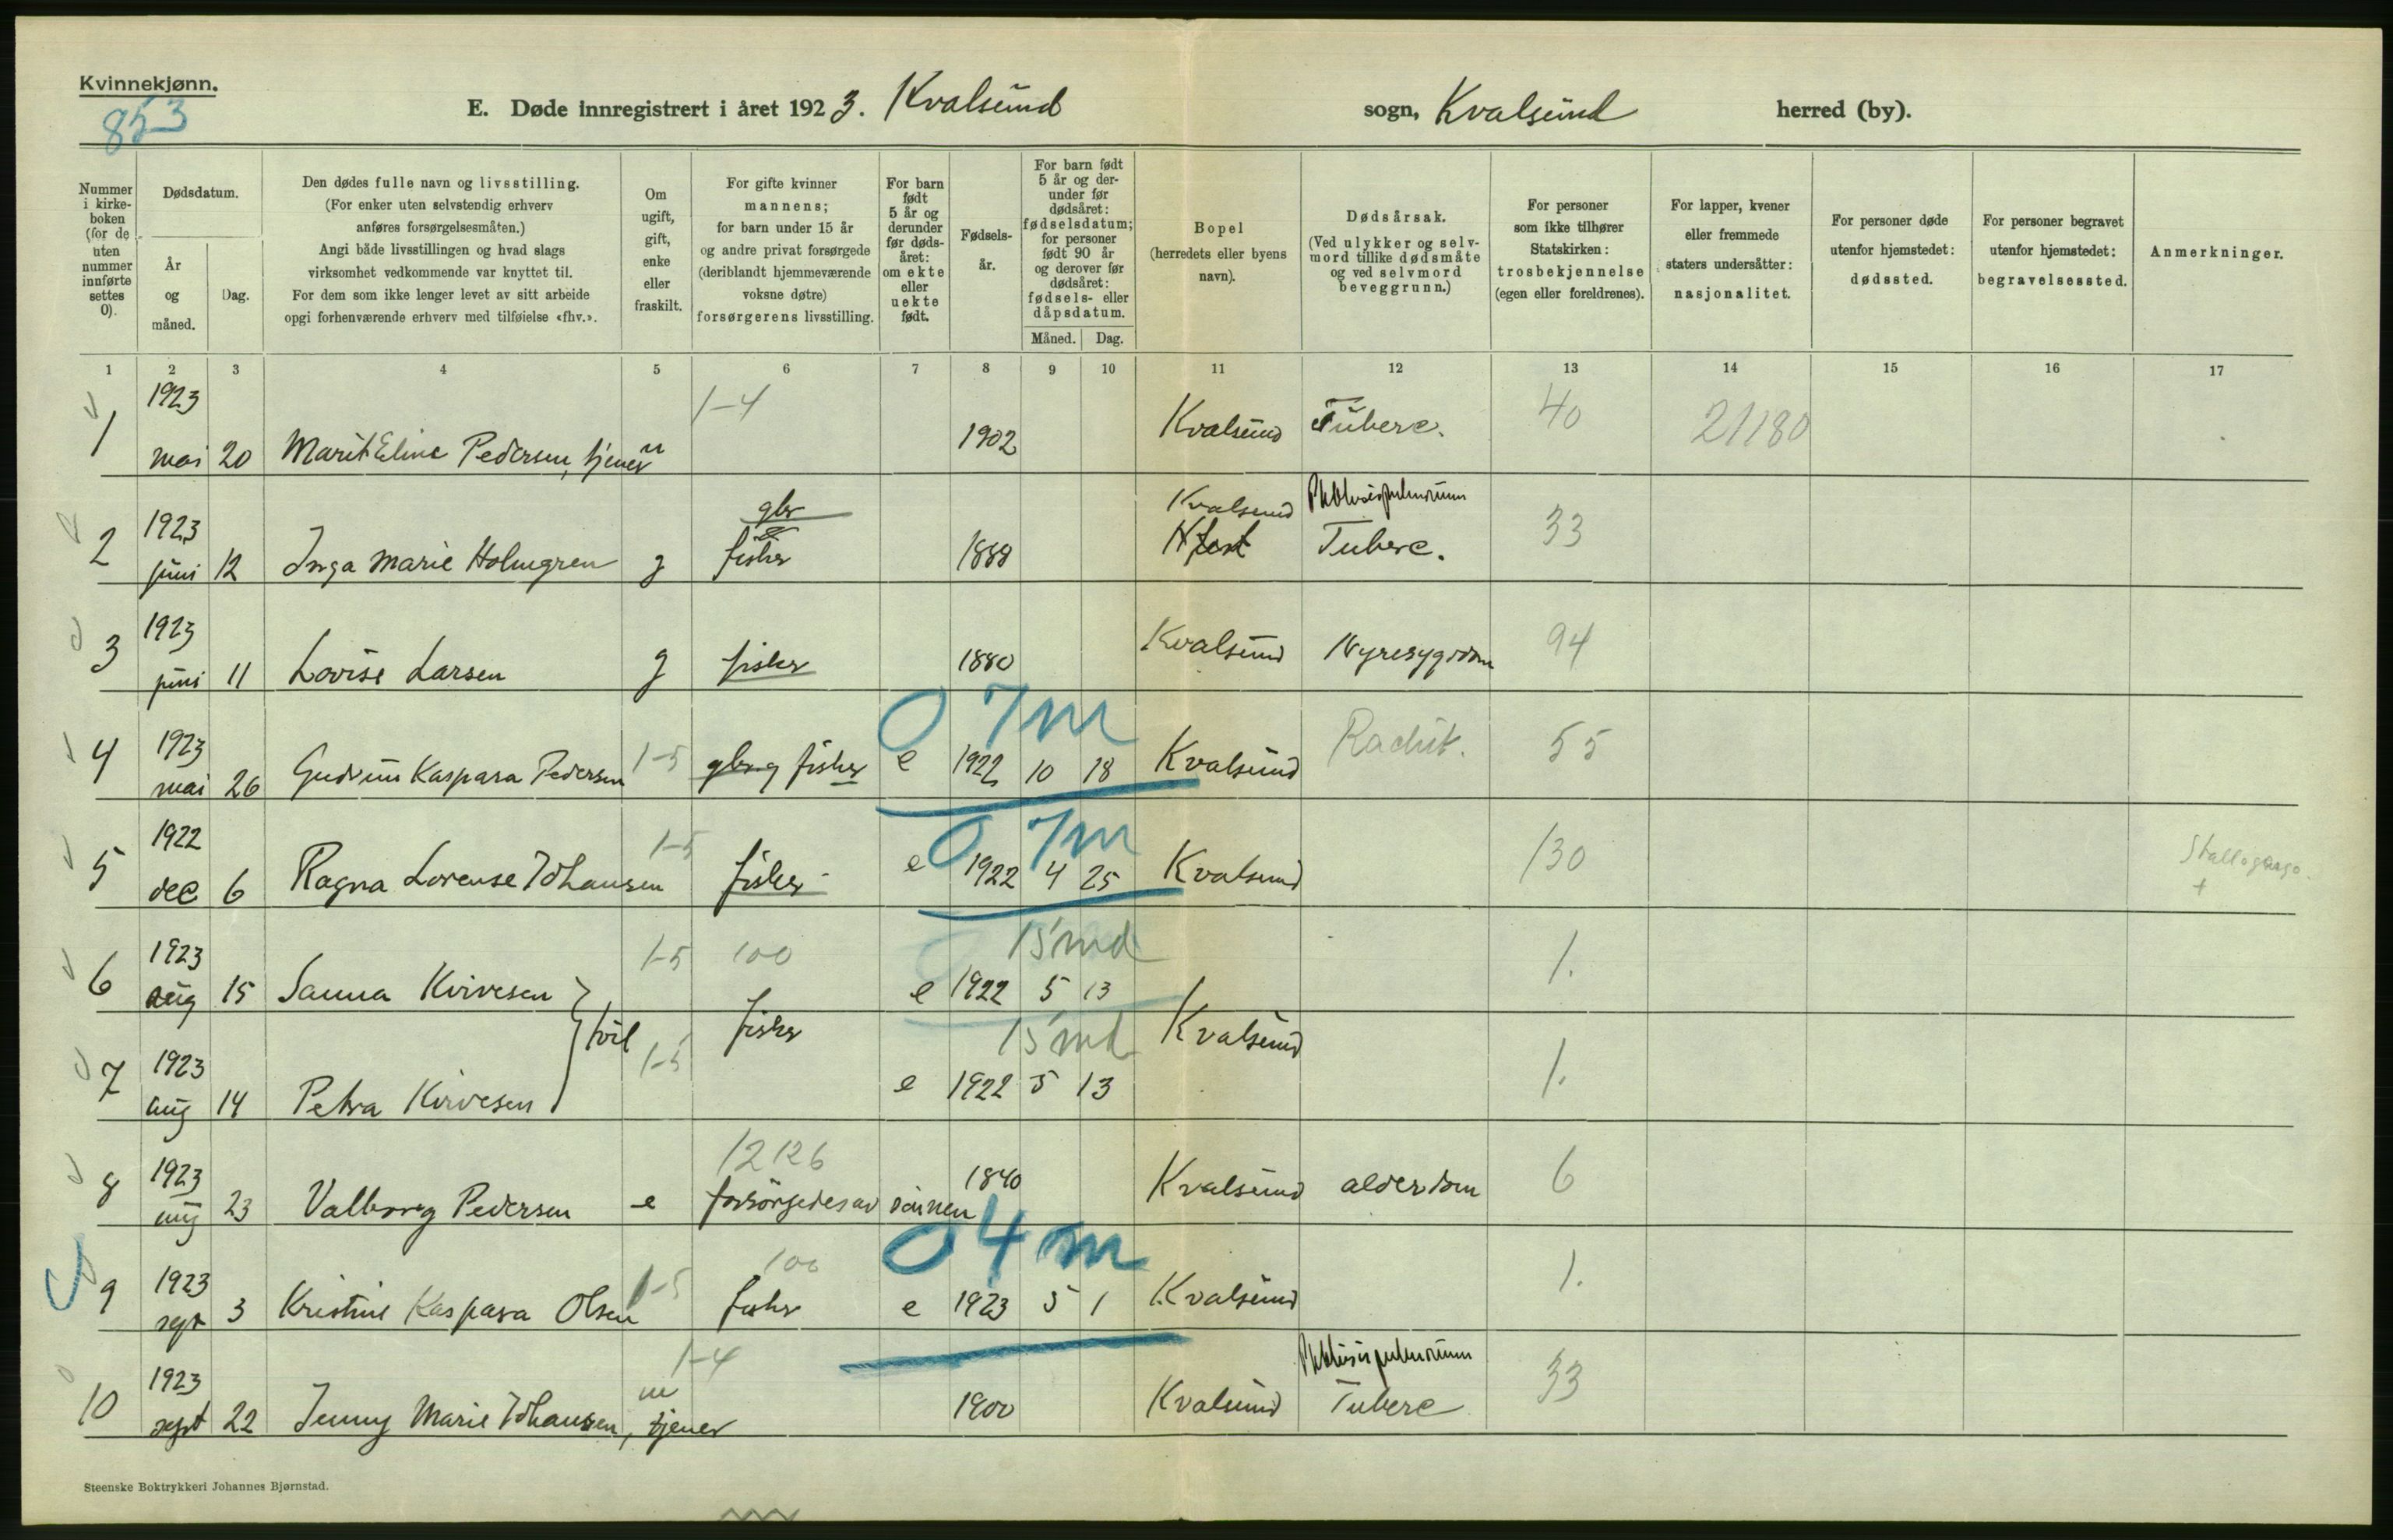 Kvinnekjønn.
853
E. Døde innregistrert i året 1923. Kvalsund sogn, Kvalsund herred (by).
Nummer i kirke- boken (for de uten nummer innførte settes 0).
Dødsdatum.
År og måned.
Dag.
Den dødes fulle navn og livsstilling.
(For enker uten selvstendig erhverv
anføres forsørgelsesmåten.)
Angi både livsstillingen og hvad slags
virksomhet vedkommende var knyttet til.
For dem som ikke lenger levet av sitt arbeide
opgi forhenværende erhverv med tilføielse «fhv.».
Om ugift, gift, enke eller fraskilt.
For gifte kvinner
mannens;
for barn under 15 år
og andre privat forsørgede
(deriblandt hjemmeværende
voksne døtre)
forsørgerens livsstilling.
For barn født 5 år og derunder før døds- året: om ekte eller uekte født.
Fødsels- år.
For barn født 5 år og der- under før dødsåret: fødselsdatum; for personer født 90 år og derover før dødsåret: fødsels- eller dåpsdatum.
Måned. Dag.
Bopel
(herredets eller byens
navn).
Dødsårsak.
(Ved ulykker og selv-
mord tillike dødsmåte
og ved selvmord
beveggrunn.)
For personer
som ikke tilhører
Statskirken:
trosbekjennelse
(egen eller foreldrenes).
For lapper, kvener
eller fremmede
staters undersåtter:
nasjonalitet.
For personer døde
utenfor hjemstedet:
dødssted.
For personer begravet
utenfor hjemstedet:
begravelsessted.
Anmerkninger.
1 2 3 4 5 6 7 8 9 10 11 12 13 14 15 16 17
1 1923 mai 20 Marit Eline Pedersen, tjener u 1-4 1902 Kvalsund Tuberc. 40 21180
2 1923 juni 12 Inga Marie Holmgren g gbr fisker 1888 Kvalsund Hfest Phthisis pulmonum Tuberc. 33
3 1923 juni 11 Lovise Larsen g fisker 1880 Kvalsund Nyresygdom 94
4 1923 mai 26 Gudrun Kaspara Pedersen 1-5 gbr og fisker e 1922 10 18 0 7m Kvalsund Rachit. 55
5 1922 dec 6 Ragna Lorense Johansen 1-5 fisker e 1922 4 25 0 7m Kvalsund 130 Stallogargo. +
6 1923 aug 15 Sanna Kvivesen 1-5 100 e 1922 5 13 15 md 1.
tvil fisker Kvalsund
7 1923 aug 14 Petra Kirvesen 1-5 e 1922 5 13 15 md 1.
8 1923 aug 23 Valborg Pedersen e 12126 forsörgedes av sönnen 1840 Kvalsund alderdom 6
9 1923 sept 3 Kristine Kaspara Olsen 1-5 100 fisker e 1923 5 1 0 4 m Kvalsund 1.
10 1923 sept 22 Jenny Marie Johansen, tjener 1-4 1900 Kvalsund Phthisis pulmonum Tuberc 33
Steenske Boktrykkeri Johannes Bjørnstad.